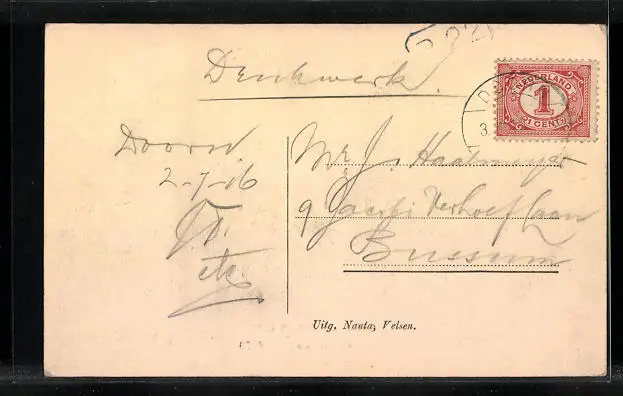 Drukwerk.
NEDERLAND
1
1 CENT
3.
Doorn
2-7-16
etc.
Mr. J.
9 Jacobi Verhoef laan
Bussum
Uitg. Nauta, Velsen.